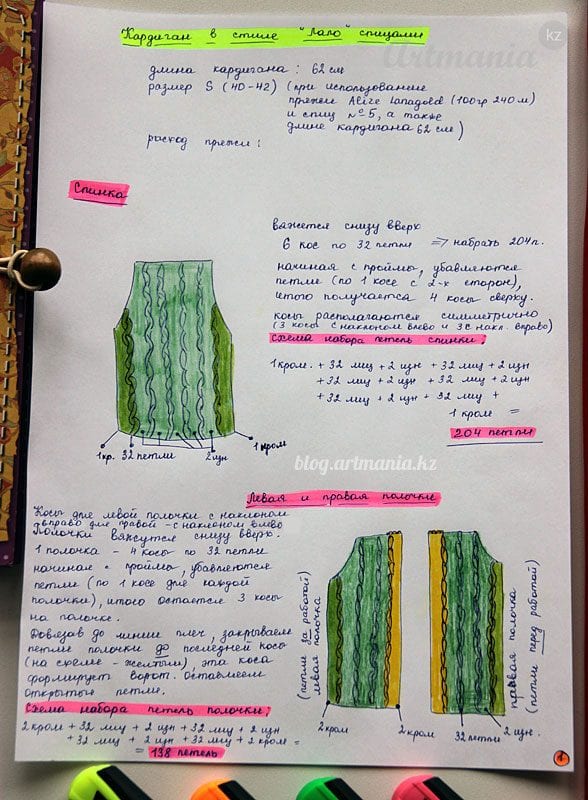 Кардиган в стиле "Лало" спицами
Artmania kz
длина кардигана: 62 см
размер S (40-42) (при использование
пряжи Alize Lanagold (100гр 240 м)
и спиц №5, а также
длине кардигана 62 см)
расход пряжи:
Спинка
вяжется снизу вверх
6 кос по 32 петли => набрать 204 п.
начиная с проймы, убавляются
петли (по 1 косе с 2-х сторон),
итого получается 4 косы сверху.
косы располагаются симметрично
(3 косы с наклоном влево и 3 с накл. вправо)
Схема набора петель спинки:
1 кром. + 32 лиц + 2 изн + 32 лиц + 2 изн
+ 32 лиц + 2 изн + 32 лиц + 2 изн
+ 32 лиц + 2 изн + 32 лиц +
1 кром =
204 петли
1 кр. 32 петли 2 изн 1 кром
blog.artmania.kz
Левая и правая полочки
Косы для левой полочки с наклоном
вправо для правой - с наклоном влево
Полочки вяжутся снизу вверх.
1 полочка - 4 косы по 32 петли
начиная с проймы, убавляются
петли (по 1 косе для каждой
полочки), итого остается 3 косы
на полочке.
Довязав до линии плеч, закрываем
петли полочки до последней косы
(на схеме - желтым), эта коса
формирует ворот. Оставляем
открытые петли.
Схема набора петель полочки:
2 кром + 32 лиц + 2 изн + 32 лиц + 2 изн
+ 32 лиц + 2 изн + 32 лиц + 2 кром =
= 138 петель
(петли за работой)
левая полочка
правая полочка
(петли перед работой)
2 кром 2 кром 32 петли 2 изн.
1